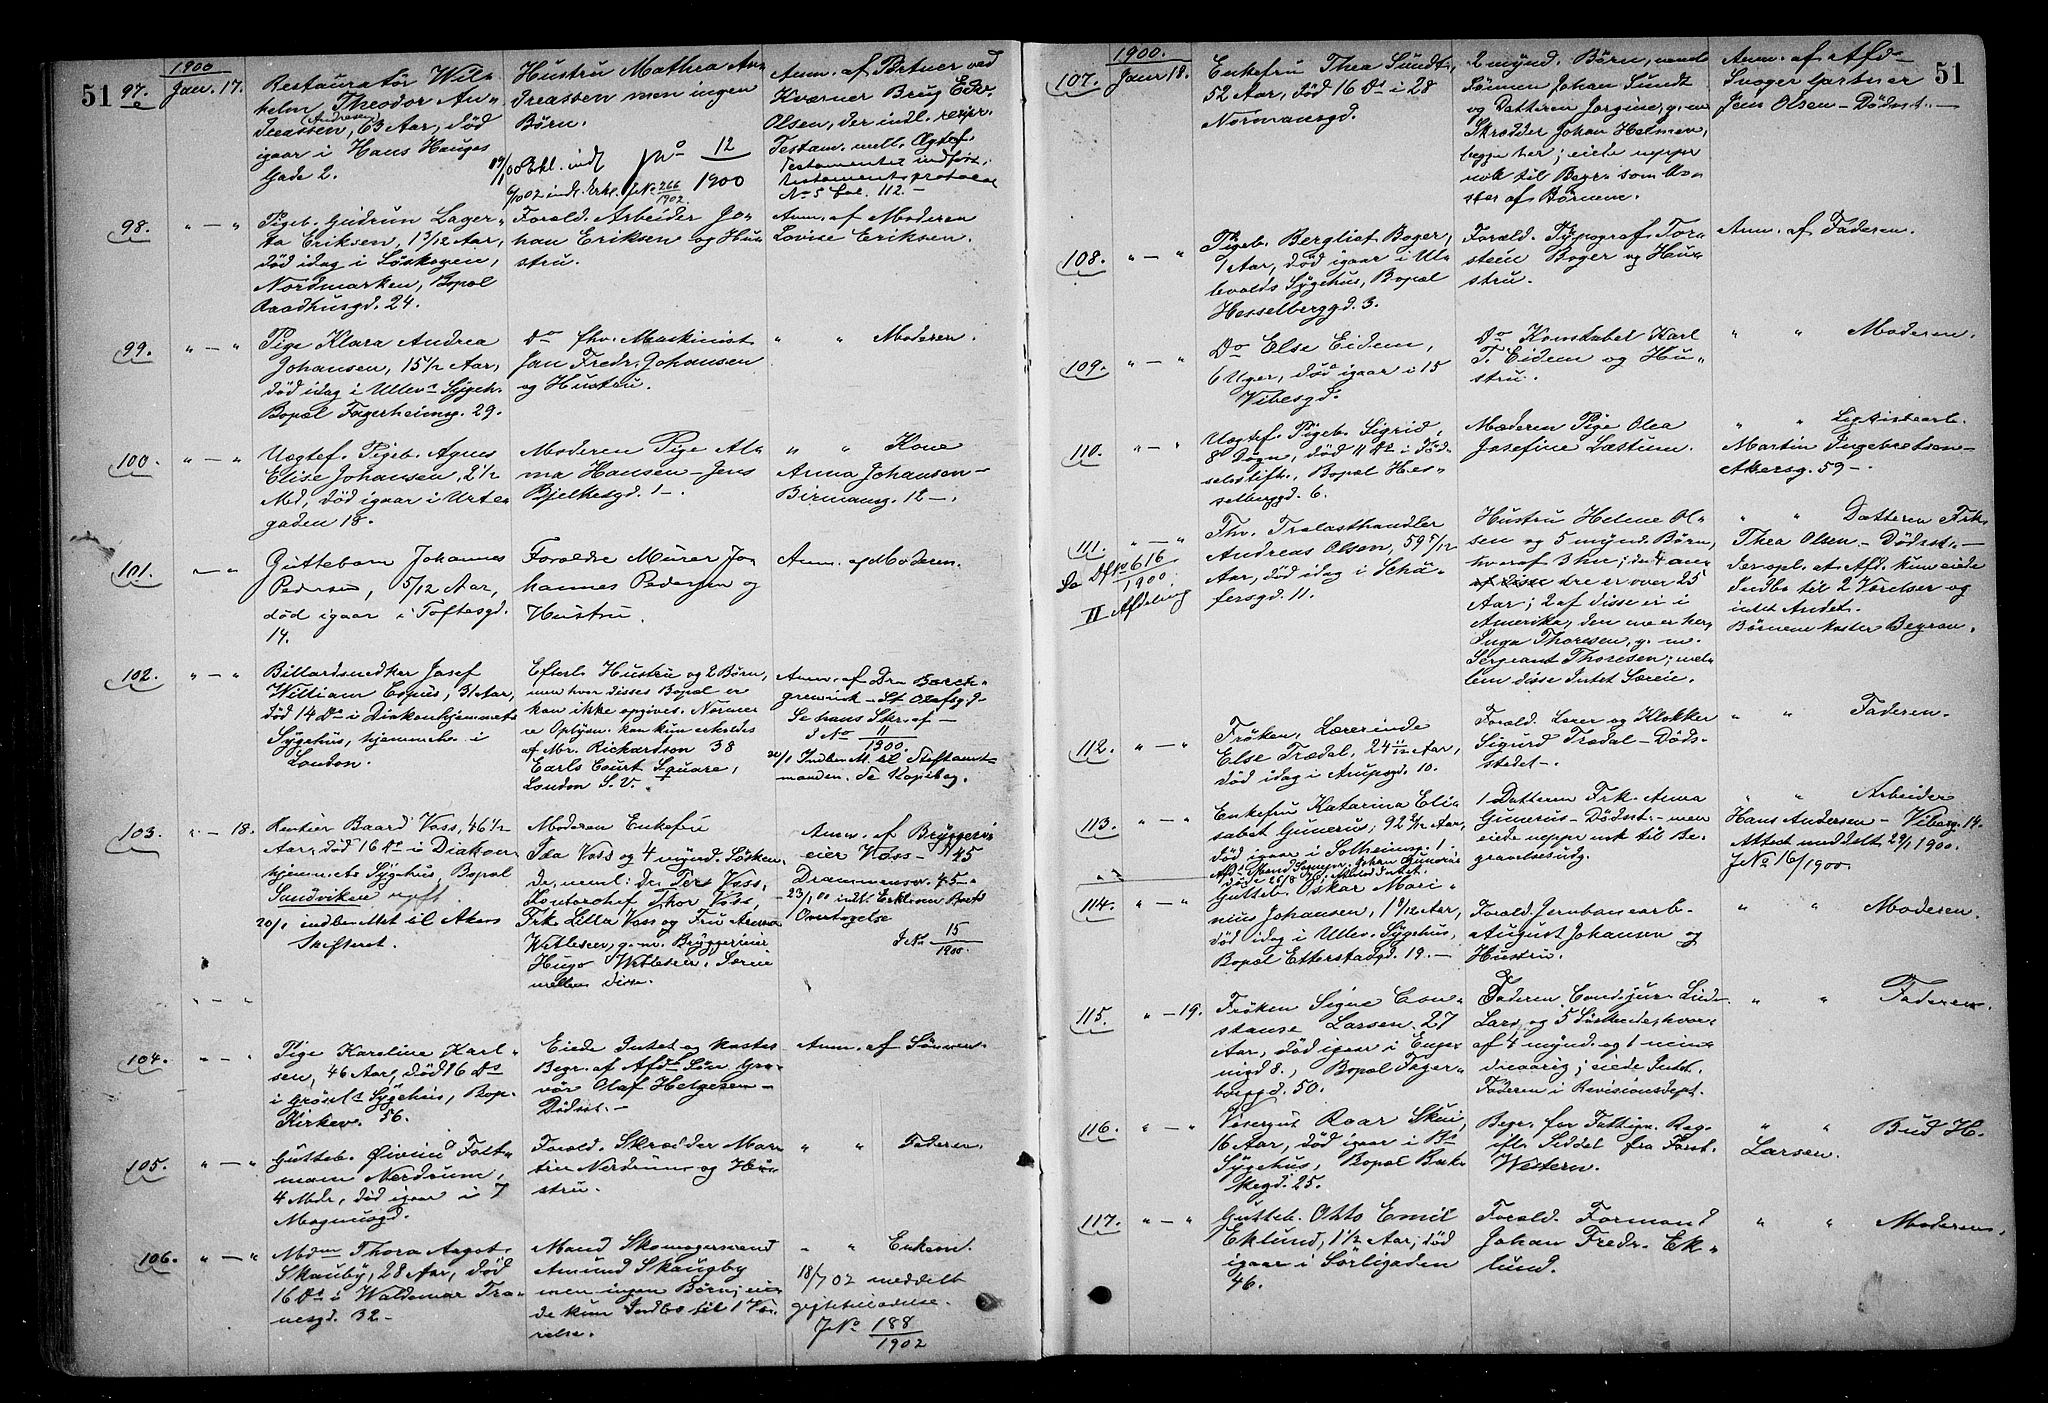 51
1900
97.
Jan. 17.
Restauratør Wil-
helm Theodor An-
(Andresen)
dreassen, 63 Aar, død
igaar i Hans Hauges
Gade 2.
Hustru Mathea An-
dreassen men ingen
Børn.
Erkl. indl.
JNo 12
1900
6/10 02 indl. Erkl. JNo 266
1902.
Anm. af Portner ved
Kværner Brug Edv.
Olsen, der indl. recipr.
Testam. mell. Ægtef.
Testamentet indført i
testamentsprotocol
No 5 fol. 112 –
98.
" — "
Pigeb. Gudrun Lager-
ta Eriksen, 1 3/12 Aar,
død idag i Løskogen,
Nordmarken, Bopæl
Raadhusgd. 24.
Foræld. Arbeider Jo-
han Eriksen og Hu-
stru.
Anm. af Moderen
Lovise Eriksen.
99.
" — "
Pige Klara Andrea
Johansen, 15 1/2 Aar,
død idag i Ullev. Sygeh.
Bopæl Fagerheimg. 29.
Do fhv. Maskinist
Jan Fredr. Johansen
og Hustru.
" " Moderen.
100.
" — "
Uægtef. Pigeb. Agnes
Elise Johansen, 2 1/2
Md, død igaar i Urte-
gaden 18.
Moderen Pige Al-
ma Hansen – Jens
Bjelkesgd. 1 –.
" " Kone
Anna Johansen –
Birmansg. 12 –.
101.
— "
Guttebarn Johannes
Pedersen, 5/12 Aar,
død igaar i Toftesgd.
14.
Forældre Murer Jo-
hannes Pedersen og
Hustru.
Anm. af Moderen.
102.
" — "
Billardsnedker Josef
William Espus, 31 Aar,
død 14 Ds i Diakonhjemmets
Sygehus, hjemmeh. i
London.
Efterl. Hustru og 2 Børn,
men hvor disses Bopæl er
kan ikke opgives. Nærmer
e Oplysn. kan kun erholdes
af Mr. Richardson 38
Earls Court Square,
London S. V.
Anm. af Dra Borch-
grevink – St Olafsgd –
Se hans Skr. af –
J No 11
1900.
20/1 Indber. M. til Stiftamt-
manden. Se Kopibog.
103.
" – 18.
Rentier Baard Voss, 46 1/2
Aar, død 16 Ds i Diakon-
hjemmets Sygehus, Bopæl
Sandviken ugift.
20/1 indber. Met til Akers
Skifteret.
Moderen Enkefru
Ida Voss og 4 mynd. Søsken-
de, neml: Dr. Per Voss,
Kontorchef Thor Voss,
Frk. Lilla Voss og Fru Anna
Wittesen, g. m. Bryggerieier
Hugo Wittesen. Særeie
mellem disse.
Anm. af Bryggeri-
eier Voss –
Drammensv. 45 –
23/1 00 indl. Erklæren
Overtagelse
JNo 15
1900
" — "
104.
" — "
Pige Karoline Karl-
sen, 46 Aar, død 16 Ds
i Grøsets Sygehus, Bop.
Kirkev. 56.
Eiede Intet og kostes
Begr. af Afd. Søn Gra-
vør Olaf Helgesen –
Dødsst. –
Anm. af Sønnen.
105.
" — "
Gutteb. Øivind Folt-
mann Nerdrum,
4 Mdr, død igaar i 7
Magnusgd.
Foræld. Skrædder Mar-
tin Nerdrum og Hu-
stru.
" " Faderen.
106.
" — "
Mdm Thora Aagot
Skauby, 28 Aar, død
16 Ds i Waldemar Tra-
nesgd. 32 –
Mand Skomagersvend
Amund Skaugby
men ingen Børn; eie-
de kun Indbo til 1 Væ-
relse.
" " Enkem.
18/7 02 meddelt
giftetilladelse.
JNo 188
1902
51
1900.
107.
Janr 18.
Enkefru Thea Sundt,
52 Aar, død 16 Ds i 28
Normansgd.
2 mynd. Børn, neml.
Sønnen Johan Sundt
og Datteren Jorgine, g. m.
Skrædder Johan Helmen,
begge her; eiede neppe
nok til Begr. som Ko-
stes af Børnene.
Anm. af Afd
Svoger Gartner
Jens Olsen – Dødsst. –
108.
" — "
Pigeb. Bergliot Boger,
1 Aar, død igaar i Ul-
levolds Sygehus, Bopæl
Hesselberggd. 3.
Foræld. Typograf Tor-
stein Boger og Hu-
stru.
Anm. af Faderen.
109.
" — "
Do Else Eidem,
6 Uger, død igaar i 15
Vibesgd.
Do Konstabel Karl
T. Eidem og Hu-
stru.
" " Moderen.
110.
" — "
Uægtef. Pigeb. Sigrid,
8 Døgn, død 11 Ds i Fød-
selsstift., Bopæl Hes-
selberggd. 6.
Moderen Pige Olea
Josefine Læstum.
" " Ligkistearb.
Martin Ingebretsen –
Akersg. 59 –.
111.
" — "
Se JNo 616
1900.
II Afdeling
Fhv. Trælasthandler
Andreas Olsen, 59 5/12
Aar, død idag i Schä-
fersgd. 11.
Hustru Helene Ol-
sen og 5 mynd. Børn,
hvoraf 3 hu; de 4 an-
af disse dre er over 25
Aar; 2 af disse er i
Amerika, den ene er her,
Inga Thoresen, g. m.
Sergeant Thoresen; mel-
lem disse Intet Særeie.
" " Datteren Frk.
Thea Olsen. – Dødsst. –
der opl. at Afd. kun eiede
Indbo til 2 Værelser og
intet Andet.
Børnene koster Begrav.
112.
" — "
Frøken, Lærerinde
Else Trædal, 24 11/12 Aar,
død idag i Arupsgd. 10.
Foræld. Lærer og Klokker
Sigurd Trædal – Døds-
stedet –.
" " Faderen.
113.
" — "
Enkefru Katarina Eli-
sabet Gunerus, 92 2/12 Aar,
død igaar i Solheimsg. 1.
1 Datteren Frk. Anna
Gunerus – Dødsst. – men
eiede neppe nok til Be-
gravelsesudg.
" " Arbeider
Hans Andersen – Viberg. 14.
Attest meddelt 29/1 1900.
JNo 16/1900.
114.
" — "
Gutteb. Oskar Mari-
nius Johansen, 1 9/12 Aar,
død idag i Ullev. Sygehus,
Bopæl Etterstadgd. 19. –
Foræld. Jernbanearb.
August Johansen og
Hustru.
" " Moderen.
115.
" – 19.
Frøken Signe Con-
stanse Larsen, 27
Aar, død igaar i Enge-
nigd 8., Bopæl Fager-
borggd. 50.
Faderen Cand. jur. Linde
Lars, og 5 Søskende, hvor-
af 4 mynd. og 1 min-
dreaarig; eiede Intet.
Faderen i Revisionsdept.
" " Faderen.
116.
" — "
Visergut Roar Skui,
16 Aar, død igaar i Bs
Sygehus, Bopæl Bak-
kegd. 25.
Begr. for Fattigv. Reg.
ifl. Seddel fra Forst.
Western.
" " Bud H.
Larsen.
117.
" — "
Gutteb. Otto Emil
Eklund, 1 1/2 Aar, død
igaar i Sørligaden
46.
Foræld. Formand
Johan Fredr. Ek-
lund.
" " Moderen.